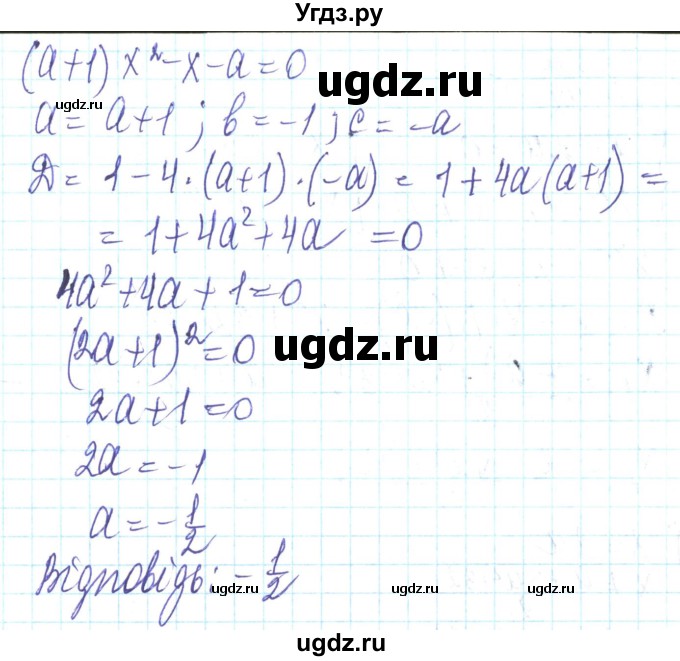 Угдз.ру
(a+1)x²-x-a=0
ugdz.ru
ugdz.ru
a=a+1; b=-1; c=-a
Д=1-4·(a+1)·(-a)=1+4a(a+1)=
=1+4a²+4a=0
4a²+4a+1=0
(2a+1)²=0
ugdz.ru
2a+1=0
2a=-1
a=-1/2
Відповідь: -1/2
ugdz.ru
ugdz.ru
ugdz.ru
ugdz.ru